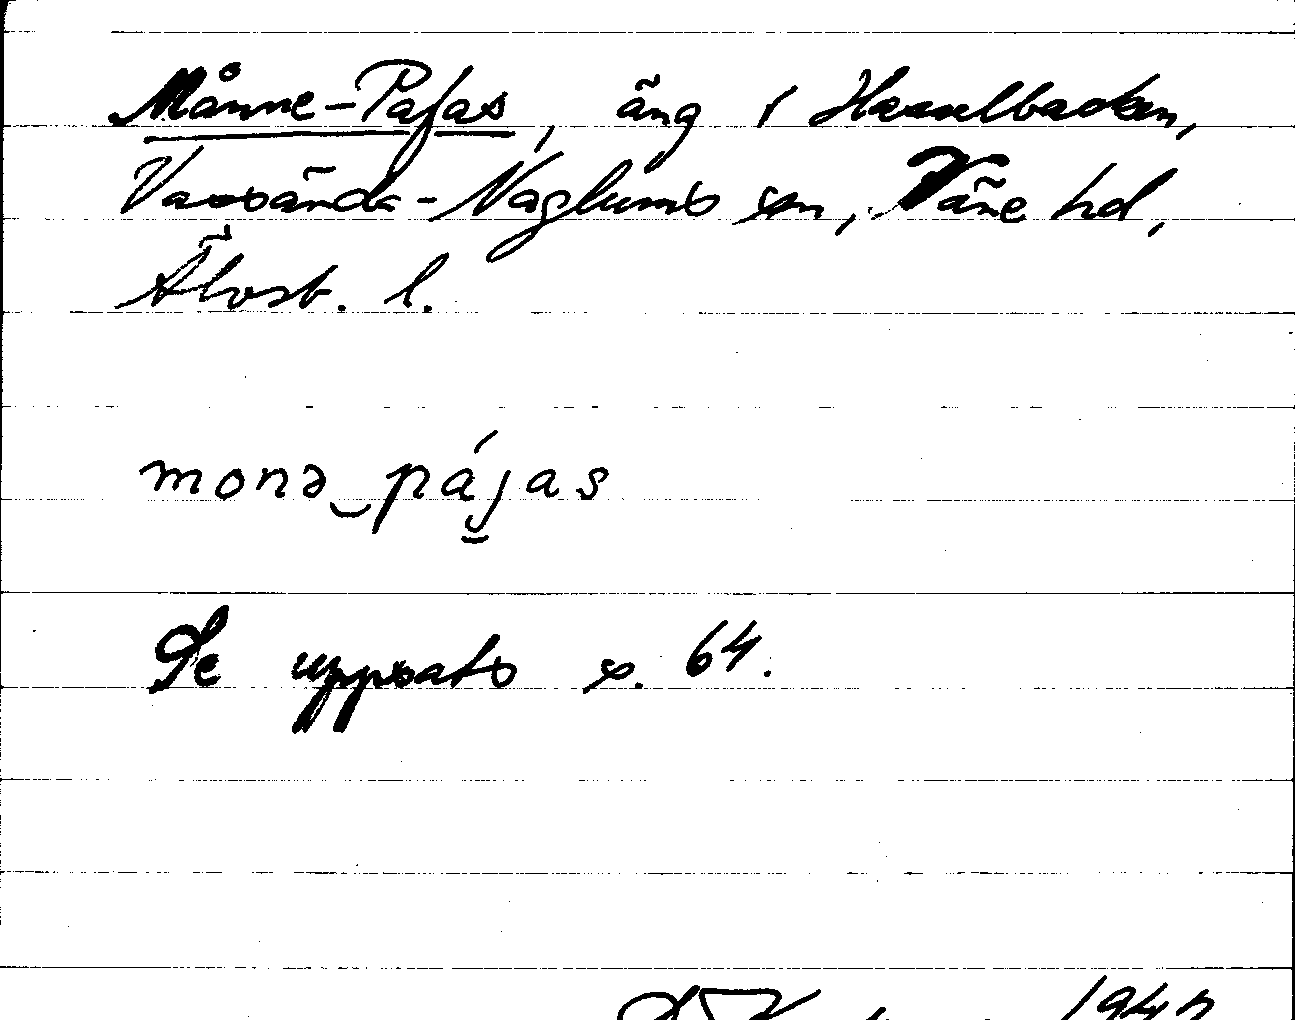 Månne-Pajas, äng i Hasselbacken,
Vassända-Naglums sn, Väne hd,
Älvsb. l.
monə‿pájas
Se uppsats s. 64.